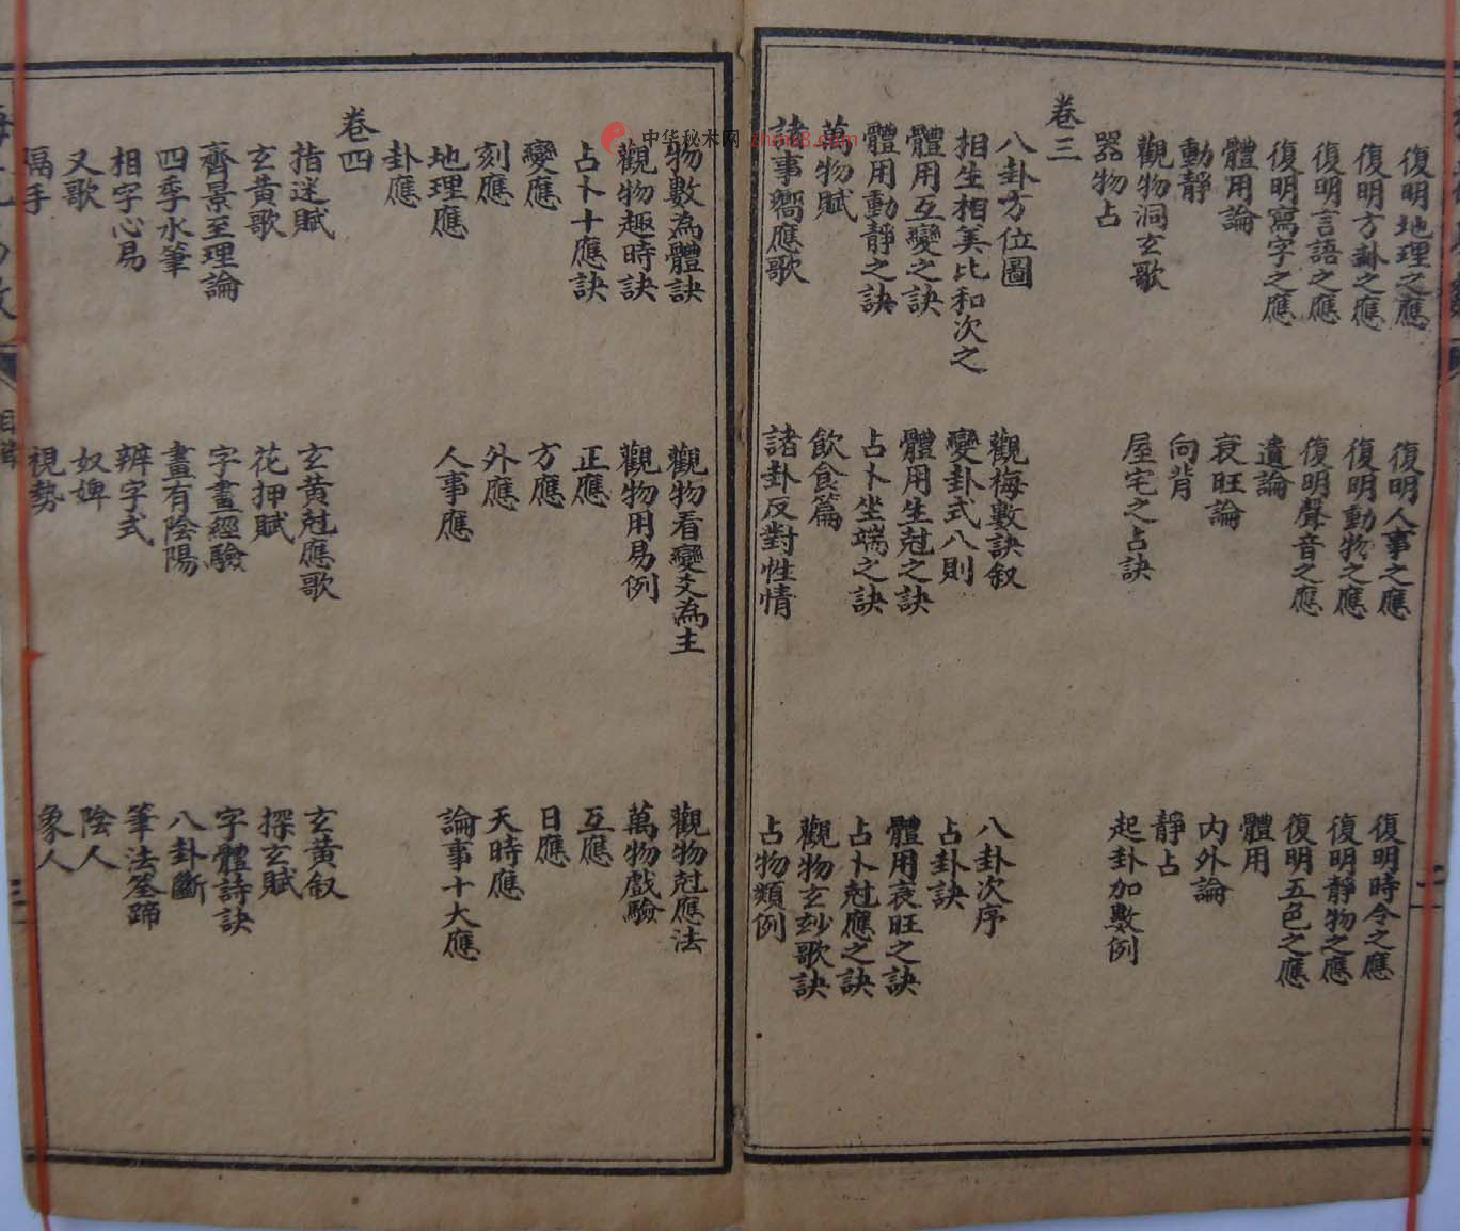 復明地理之應 復明人事之應 復明時令之應
復明方卦之應 復明動物之應 復明靜物之應
復明言語之應 復明聲音之應 復明五色之應
復明寫字之應 遺論 體用
體用論 衰旺論 內外論
動靜 向背 靜占
觀物洞玄歌 屋宅之占訣 起卦加數例
器物占
卷三
八卦方位圖 觀梅數訣叙 八卦次序
相生相尅比和次之 變卦式八則 占卦訣
體用互變之訣 體用生尅之訣 體用衰旺之訣
體用動靜之訣 占卜坐端之訣 占卜尅應之訣
萬物賦 飲食篇 觀物玄玅歌訣
諸事響應歌 諸卦反對性情 占物類例
物數為體訣 觀物看變爻為主 觀物尅應法
觀物趣時訣 觀物用易例 萬物戲驗
占卜十應訣 正應 互應
變應 方應 日應
刻應 外應 天時應
地理應 人事應 論事十大應
卦應
卷四
指迷賦 玄黃尅應歌 玄黃叙
玄黃歌 花押賦 探玄賦
齊景至理論 字畫經驗 字體詩訣
四季水筆 畫有陰陽 八卦斷
相字心易 辨字式 筆法筌蹄
又歌 奴婢 陰人
隔手 視勢 象人
目錄
中华秘术网 zhms8.com